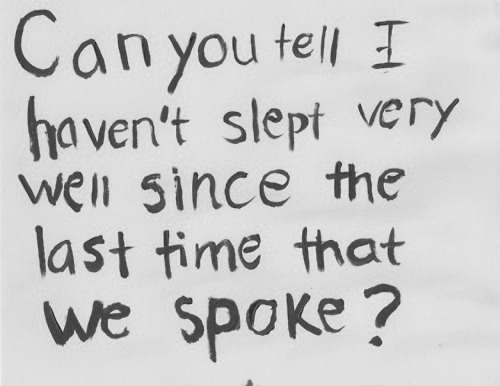 Can you tell I
haven't slept very
well since the
last time that
we spoke?